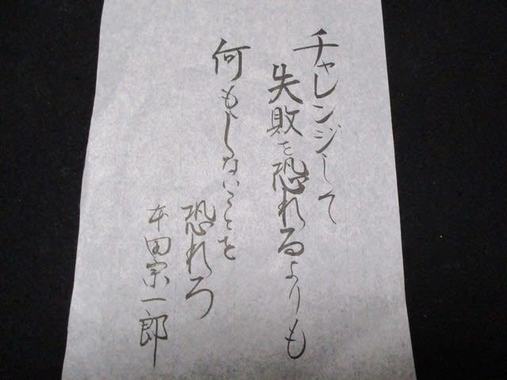 チャレンジして
失敗を恐れるよりも
何もしないことを
恐れろ
本田宗一郎